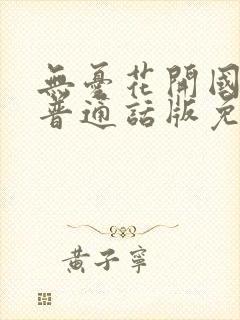 無憂花開國
普通話版免
黃子寧